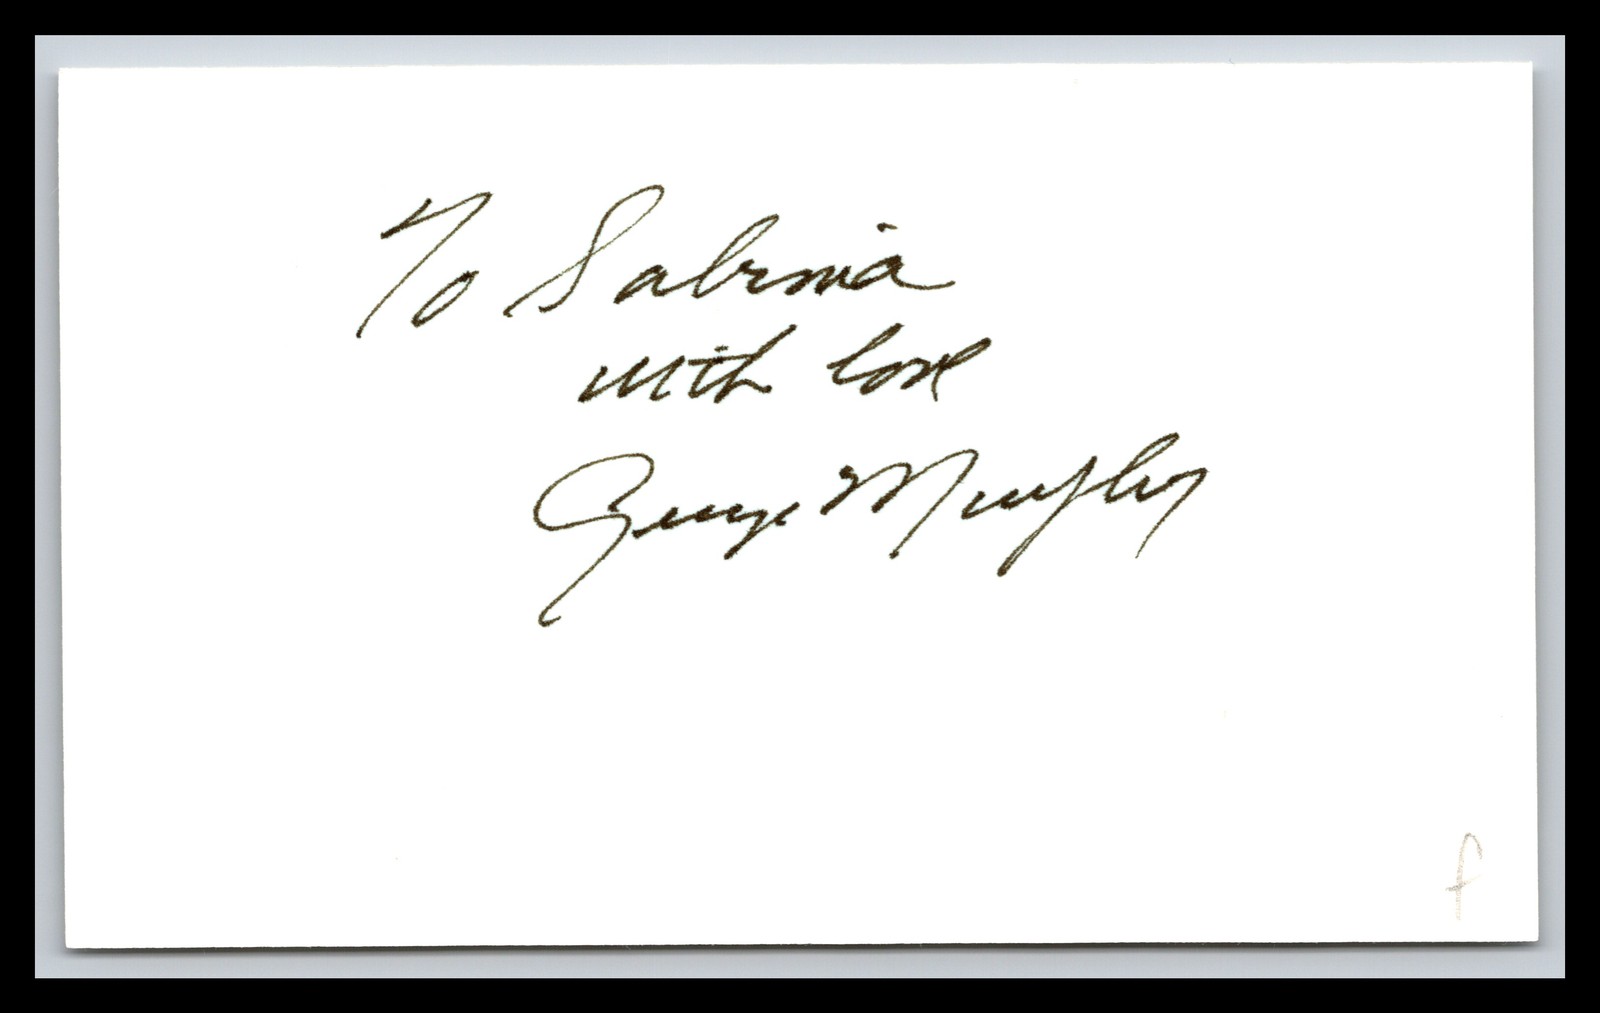 To Sabrina
with love
George Murphy
f